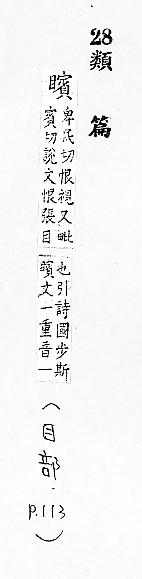 28 類篇
矉
卑民切恨視又毗
賓切說文恨張目
也引詩國步斯
矉文一重音一
(目部·p.113)